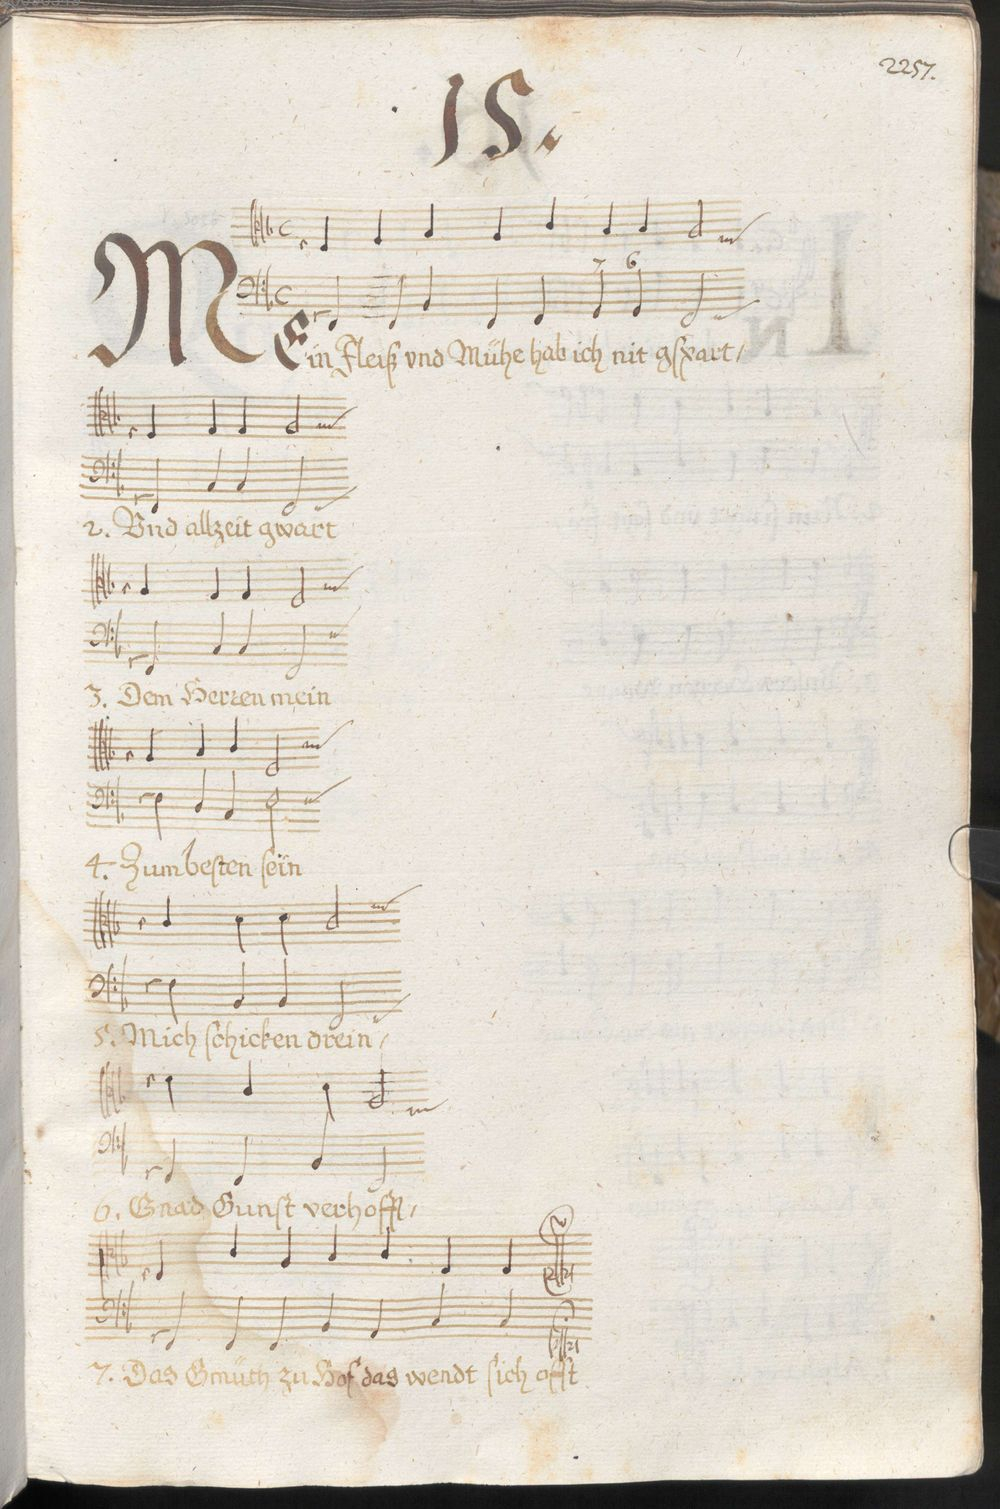 2257.
15.
7 6
MEin Fleiß vnd Mühe hab ich nit gspart/
2. Vnd allzeit gwart
3. Dem Herren mein
4. Zum besten sein
5. Mich schicken drein/
6. Gnad Gunst verhofft/
7. Das Gmüth zu Hof das wendt sich offt